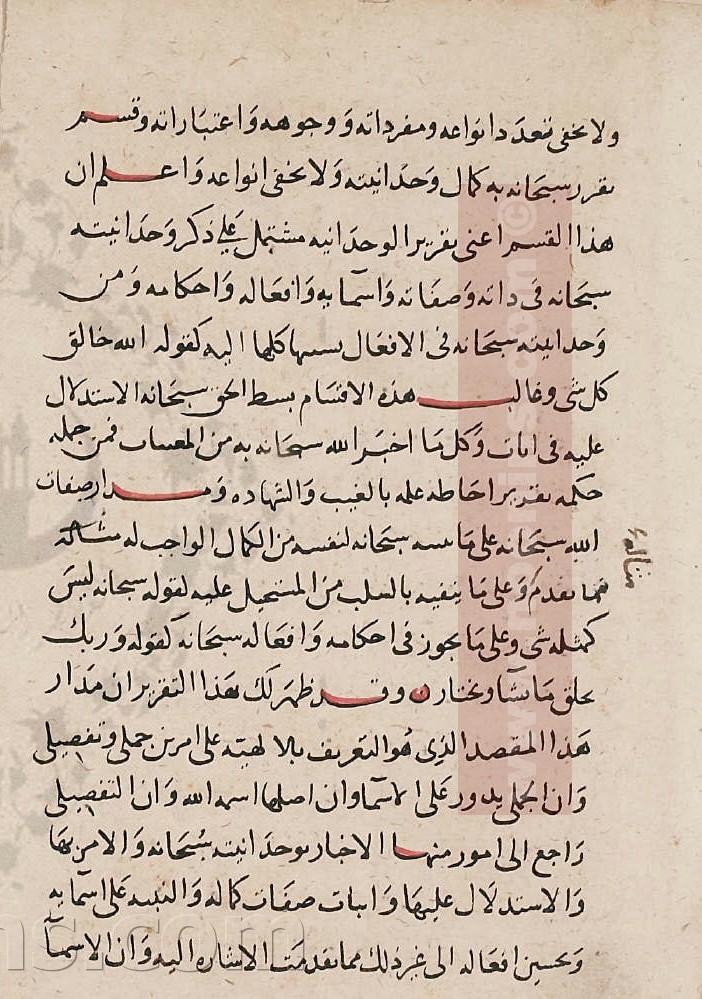 ولا يخفى تعدد انواعه ومفرداته ووجوهه واعتباراته وقسم
يقرر سبحانه به كمال وحدانيته ولا يخفى انواعه واعلم ان
هذا القسم اعنى تقرير الوحدانيه مشتمل على ذكر وحدانيته
سبحانه فى ذاته وصفاته واسمايه وافعاله واحكامه ومن
وحدانيته سبحانه فى الافعال نسبتها كلها اليه كقوله الله خالق
كل شى وغالب هذه الاقسام بسط الحق سبحانه الاستدلال
عليه فى ايات وكل ما اخبر الله سبحانه به من المغيبات فمن جمله
حكمه تقرير احاطه علمه بالغيب والشهاده ومدار صفات
الله سبحانه على ما سبحانه لنفسه من الكمال الواجب له مثاله
فما تقدم وعلى ما ينفيه بالسلب من المستحيل عليه لقوله سبحانه ليس
كمثله شى وعلى ما يجوز فى احكامه وافعاله سبحانه كقوله وربك
يخلق ما يشا ويختار وقد ظهر لك بهذا التقرير ان مدار
هذا المقصد الذى هو التعريف بالالهيته على امرين جملى وتفصيلى
وان الجملى يدور على الاسما وان اصلها اسمه الله وان التفصيلى
راجع الى امور منها الاخبار بوحدانيته سبحانه والامر بها
والاستدلال عليها واثبات صفات كماله والتنبيه على اسمايه
وتحسين افعاله الى غير ذلك مما تقدمت الاشاره اليه وان الاسما
مثاله
www.
ns.com